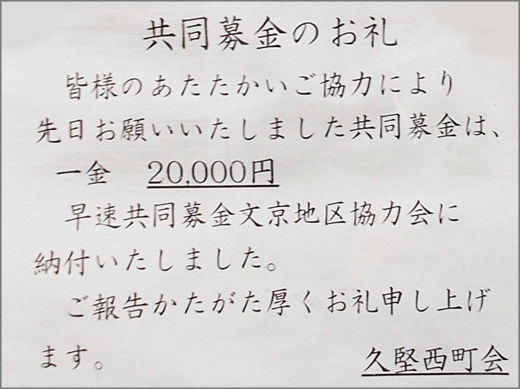 共同募金のお礼
皆様のあたたかいご協力により
先日お願いいたしました共同募金は、
一金　20,000円
早速共同募金文京地区協力会に
納付いたしました。
ご報告かたがた厚くお礼申し上げ
ます。
久堅西町会